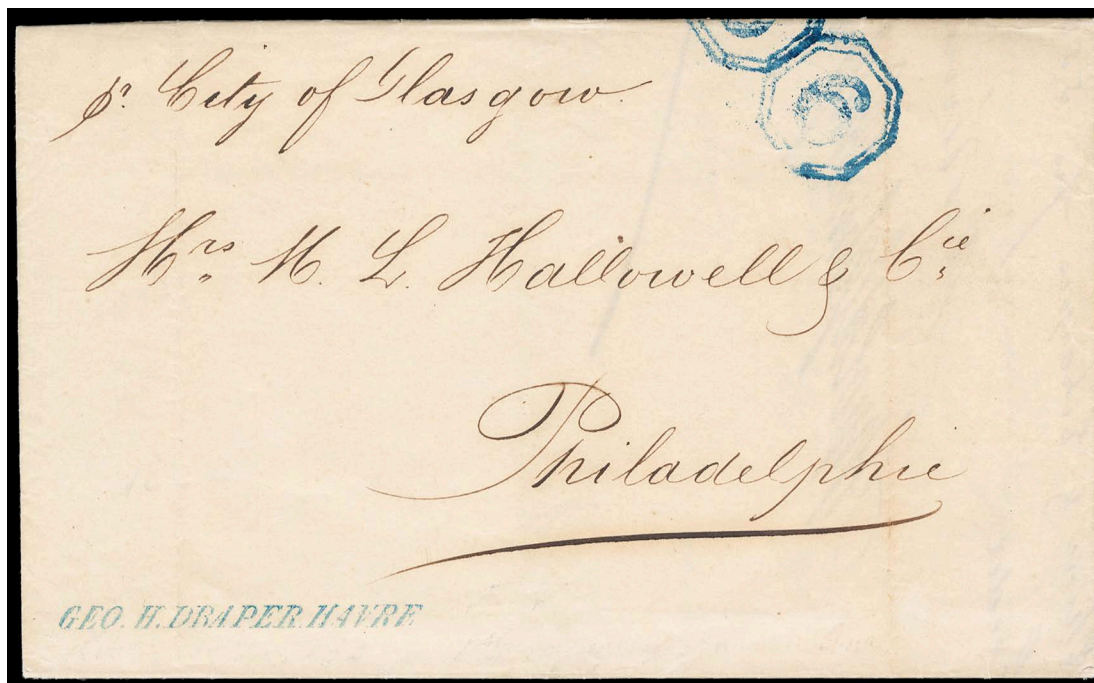 pr. City of Glasgow.
6
Mrs M. L. Hallowell & Cie
Philadelphie
GEO. H. DRAPER HAVRE